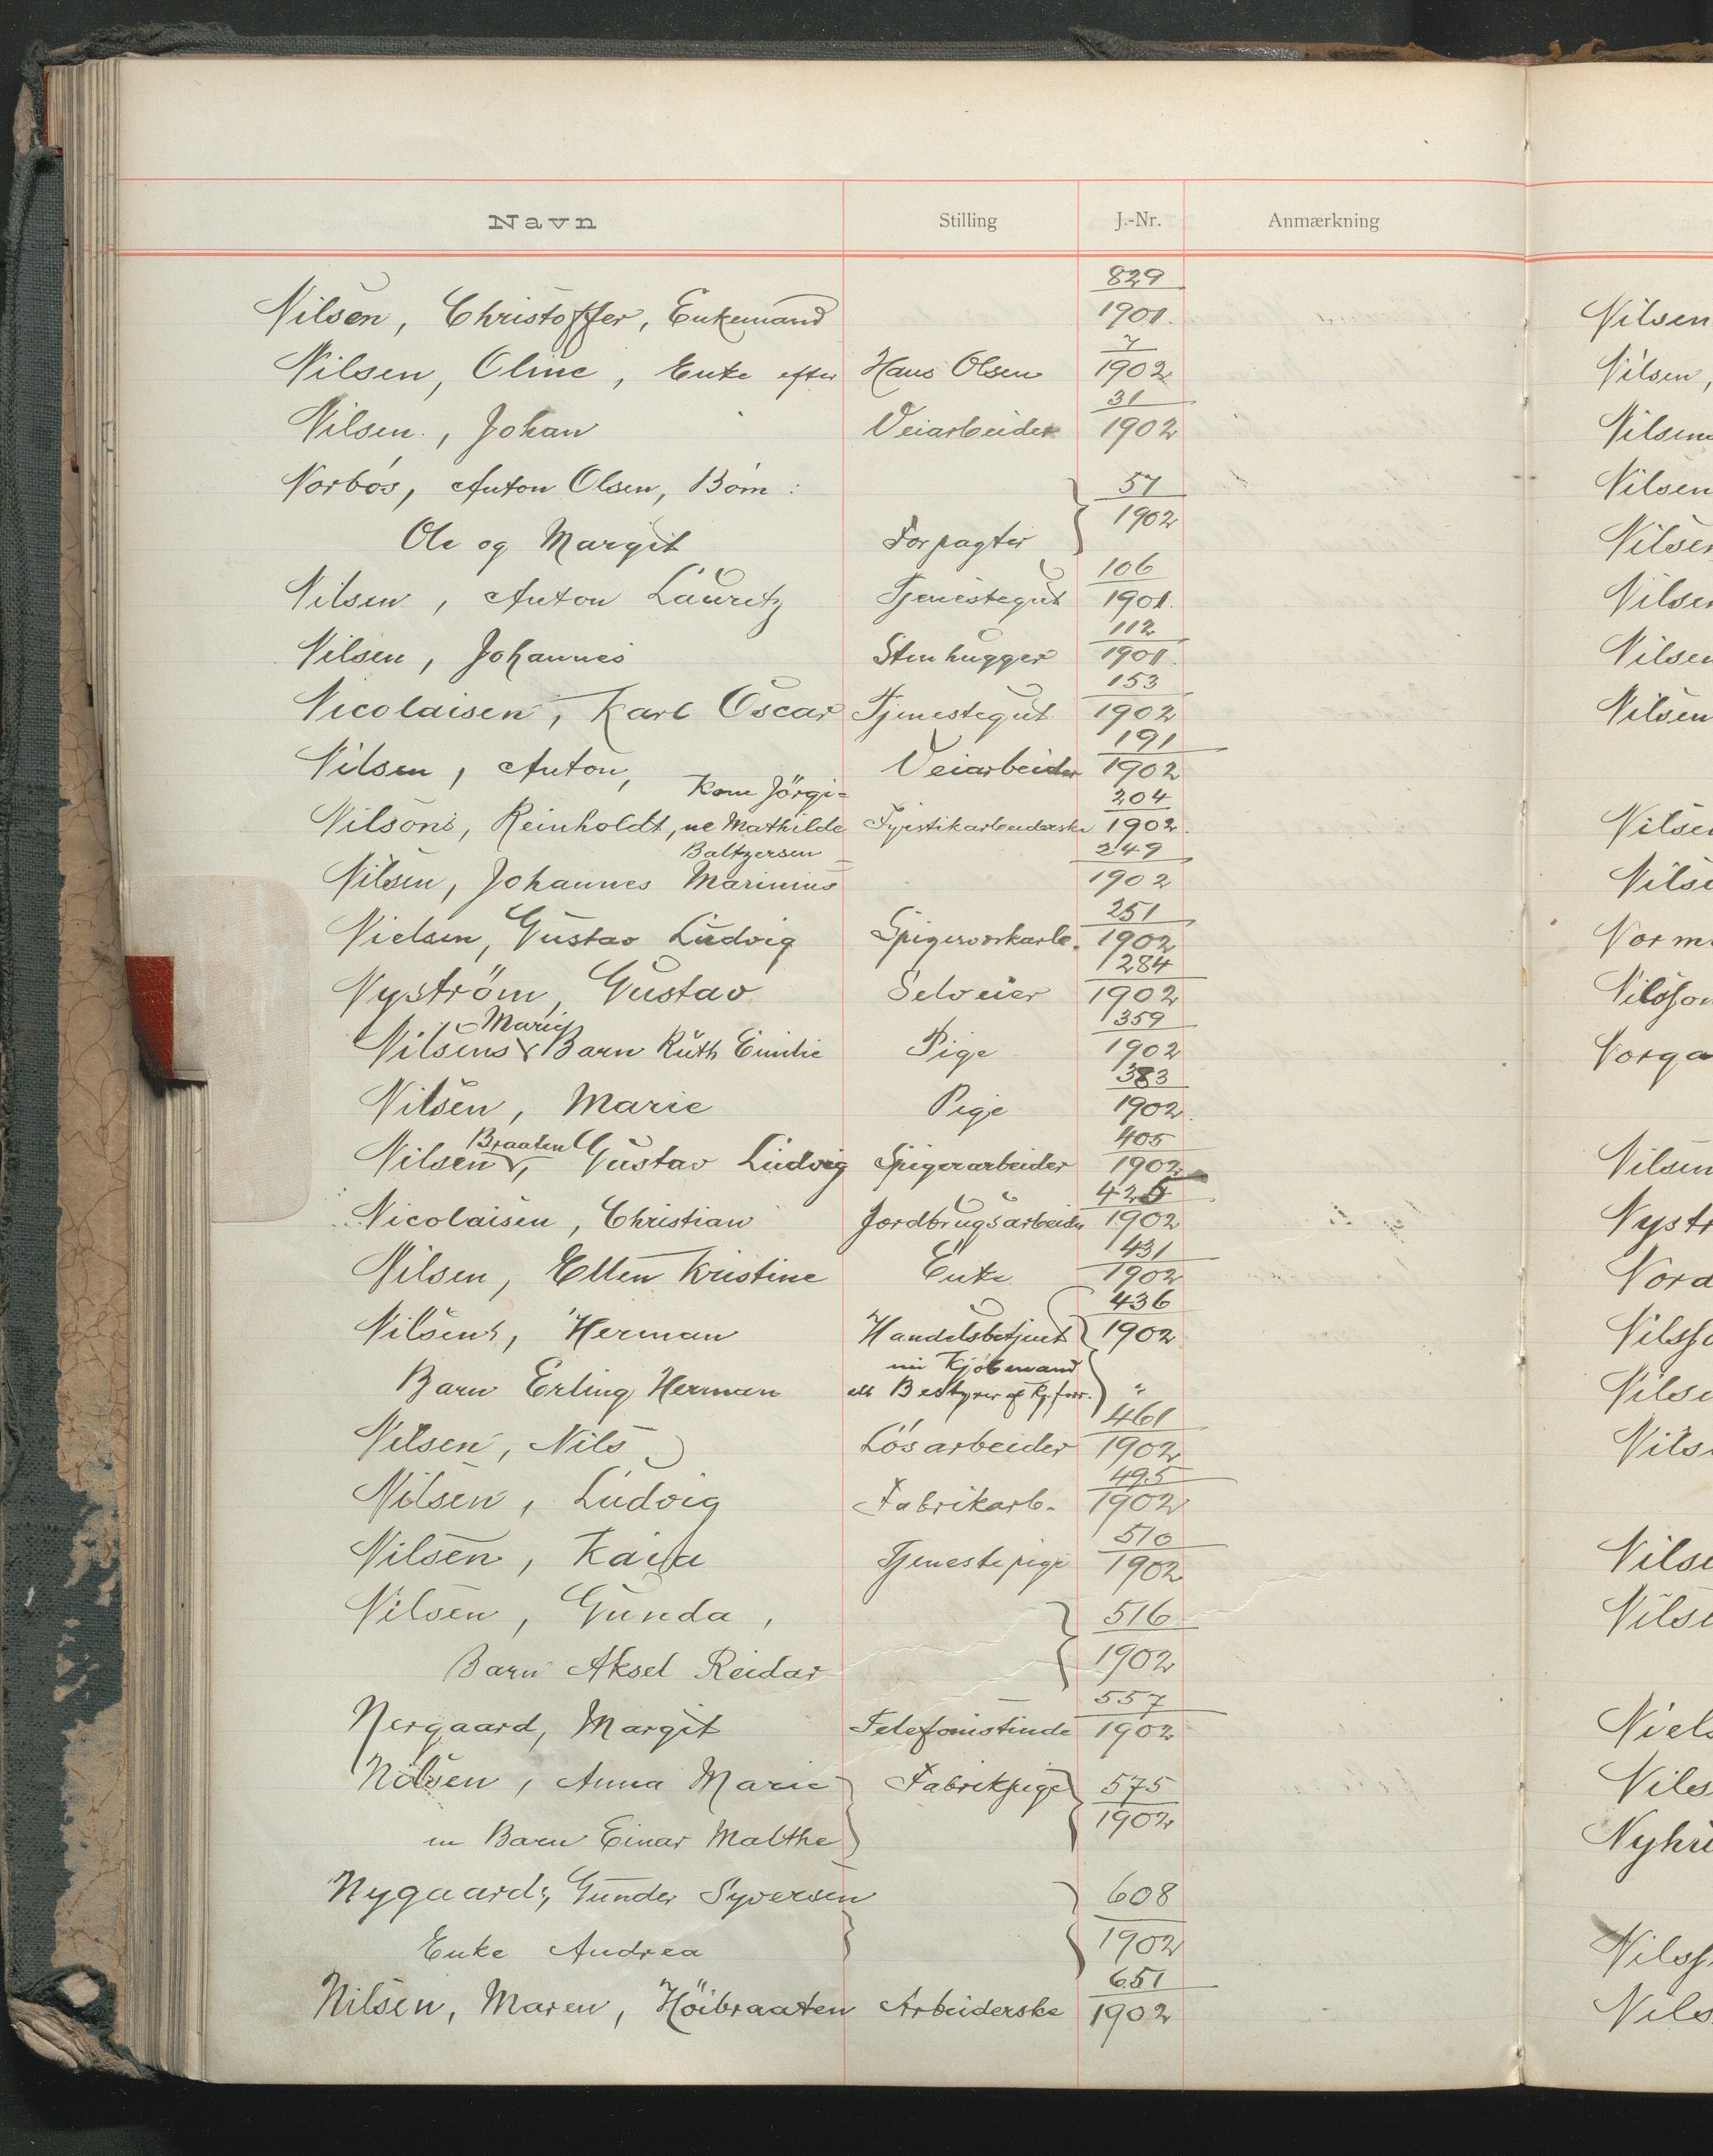 Navn Stilling J.-Nr. Anmærkning
829
Nilsen, Christoffer, Enkemand 1901.
7
Nilsen, Oline, Enke efter Hans Olsen 1902
31
Nilsen, Johan Veiarbeider 1902
Norbös, Anton Olsen, Börn: 57
1902
Ole og Margit Forpagter
106
Nilsen, Anton Lauritz Tjenestegut 1901.
112
Nilsen, Johannes Stenhugger 1901.
153
Nicolaisen, Karl Oscar Tjenestegut 1902
191
Nilsen, Anton, Veiarbeider 1902
Kone Jörgi= 204
Nilsens, Reinholdt, ne Mathilde Fyrstikarbeiderske 1902.
Baltzersen 249
Nilsen, Johannes Marinius 1902
251
Nielsen, Gustav Ludvig 1902
284
Nyström, Gustav Selveier 1902
Marie 359
Nilsens Barn Ruth Emilie Pige 1902
383
Nilsen, Marie Pige 1902.
Braaten 405
Nilsen, Gustav Ludvig Spigerarbeider 1902
425
Nicolaisen, Christian Jordbrugsarbeider 1902
431
Nilsen, Ellen Kristine Enke 1902
436
Nilsens, Herman Handelsbetjent 1902
nu Kjöbmand
Barn Erling Herman ell Bestyrer af Kj.forr. "
461
Nilsen, Nils Lösarbeider 1902
495
Nilsen, Ludvig Fabrikarb. 1902
510
Nilsen, Kaia Tjenestepige 1902
Nilsen, Gunda, 516
1902
Barn Aksel Reidar
557
Nergaard, Margit Telefonistinde 1902
Nilsen, Anna Marie Fabrikpige 575
1902
m Barn Einar Malthe
Nygaards, Gunder Syversen 608
Enke Andrea 1902
651
Nilsen, Maren, Höibraaten Arbeiderske 1902
Nilsen
Nilsen,
Nilsen
Nilsen
Nilsen
Nilsen
Nilsen